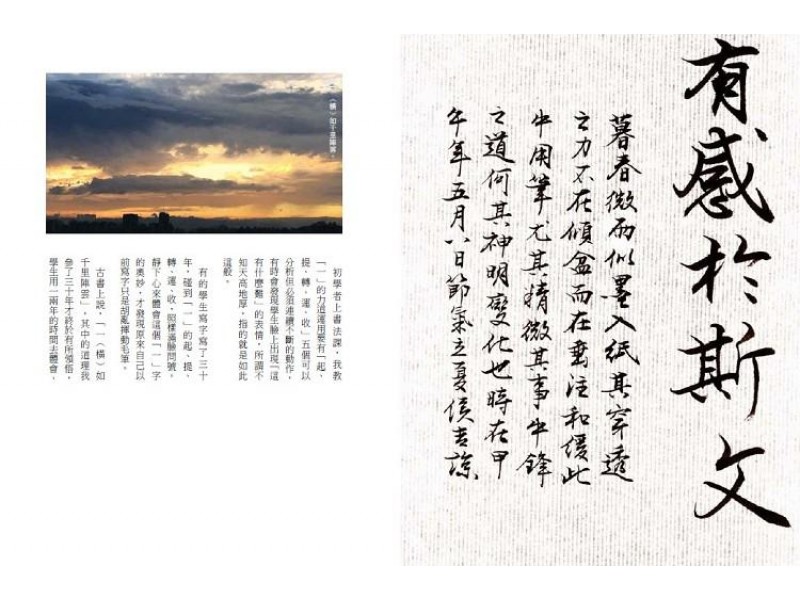 有感於斯文
暮春微雨似墨入紙其穿透
之力不在傾盆而在專注和緩此
中用筆尤其精微其事中鋒
之道何其神明變化也時在甲
午年五月八日節氣立夏侯吉諒
一（橫）如千里陣雲。
初學者上書法課，我教
「一」的力道運用要有「起、
提、轉、運、收」五個可以
分析但必須連續不斷的動作，
有時會發現學生臉上出現「這
有什麼難」的表情，所謂不
知天高地厚，指的就是如此
這般。
有的學生寫字寫了三十
年，碰到「一」的起、提、
轉、運、收，照樣滿臉問號，
靜下心來體會這個「一」字
的奧妙，才發現原來自己以
前寫字只是胡亂揮動毛筆。
古書上說，「一（橫）如
千里陣雲」，其中的道理我
參了三十年才終於有所領悟，
學生用一兩年的時間去體會，